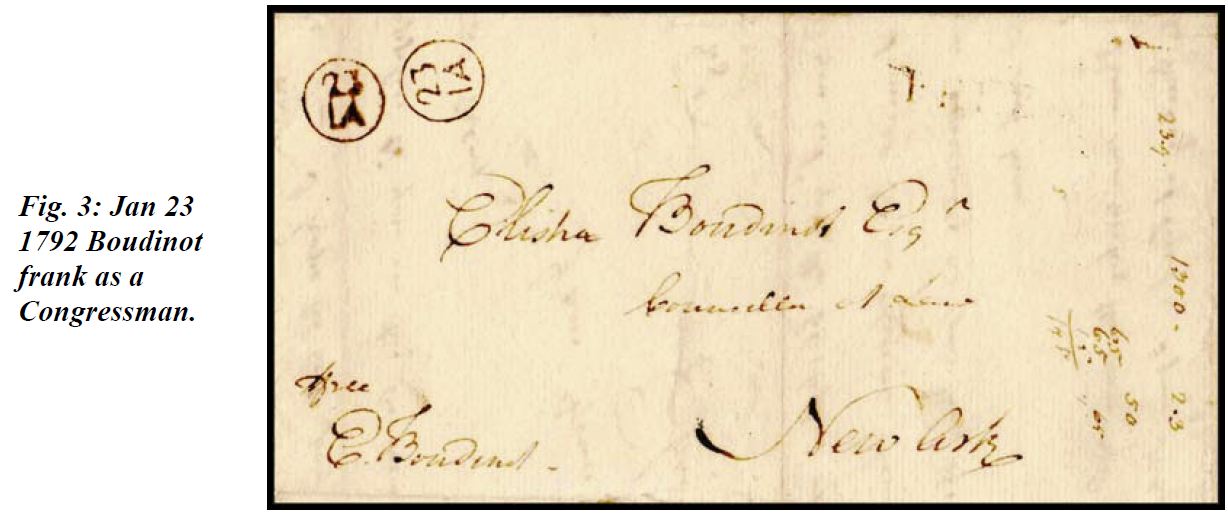 Fig. 3: Jan 23
1792 Boudinot
frank as a
Congressman.
23
IA
23
IA
Elisha Boudinot Esqr
Counsellor at Law
New York
free
E. Boudinot
234
1300
2.3
65
65
50